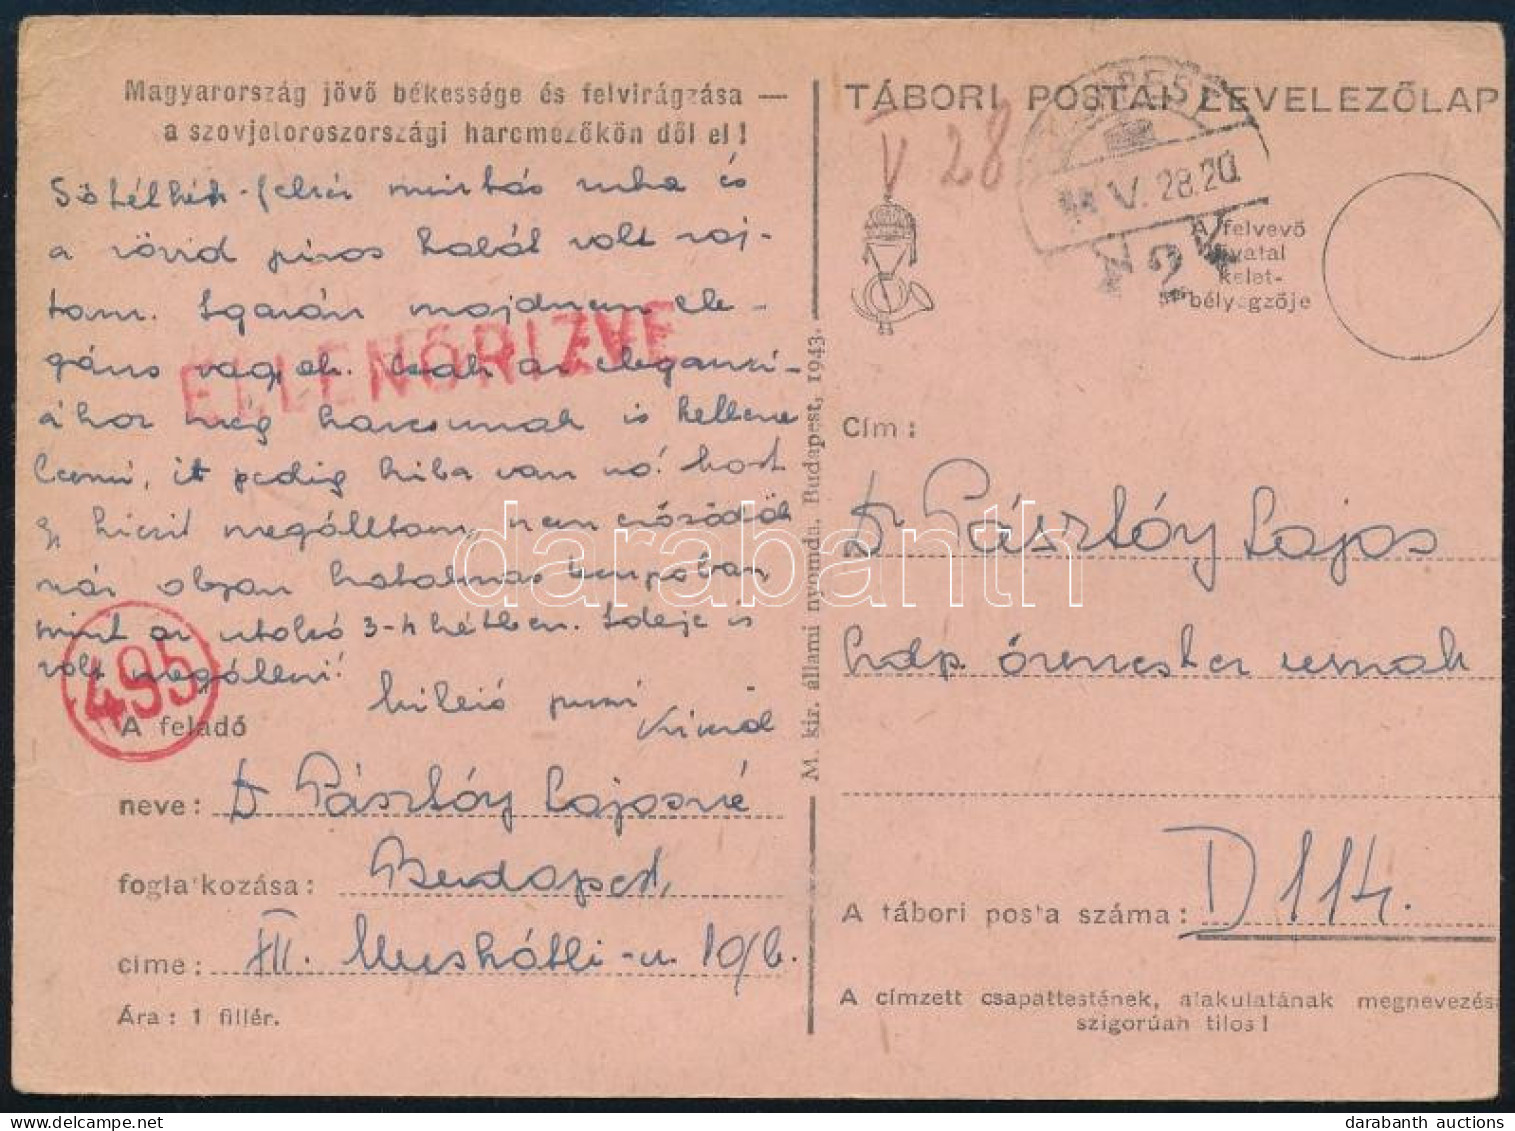 Magyarország jövő békessége és felvirágzása —
a szovjetoroszországi harcmezőkön dől el!
Sötétkék-fehér mintás ruha és
a rövid piros kabát volt raj-
tam. Igazán majdnem ele-
gáns vagyok. Csak az eleganci-
ához még harcsunak is kellene
lenni, itt pedig hiba van nó! most
egy kicsit megálltam, nem erősödök
már olyan hatalmas tempóban
mint az utolsó 3-4 hétben. Ideje is
volt megállni!
millió puszi
ELLENŐRIZVE
495
A feladó
neve: Dr Pásztóy Lajosné
foglalkozása: Budapest,
címe: III. Muskátli-u. 10/b.
Ára: 1 fillér.
M. kir. állami nyomda, Budapest, 1943.
TÁBORI POSTAI LEVELEZŐLAP
V 28
BUDAPEST
44 V. 28.20
72
A felvevő
hivatal
kelet-
bélyegzője
Cím:
Dr Pásztóy Lajos
hdp. őrmester úrnak
A tábori posta száma: D 114.
A címzett csapattestének, alakulatának megnevezése
szigorúan tilos!
darabanth
darabanth auctions